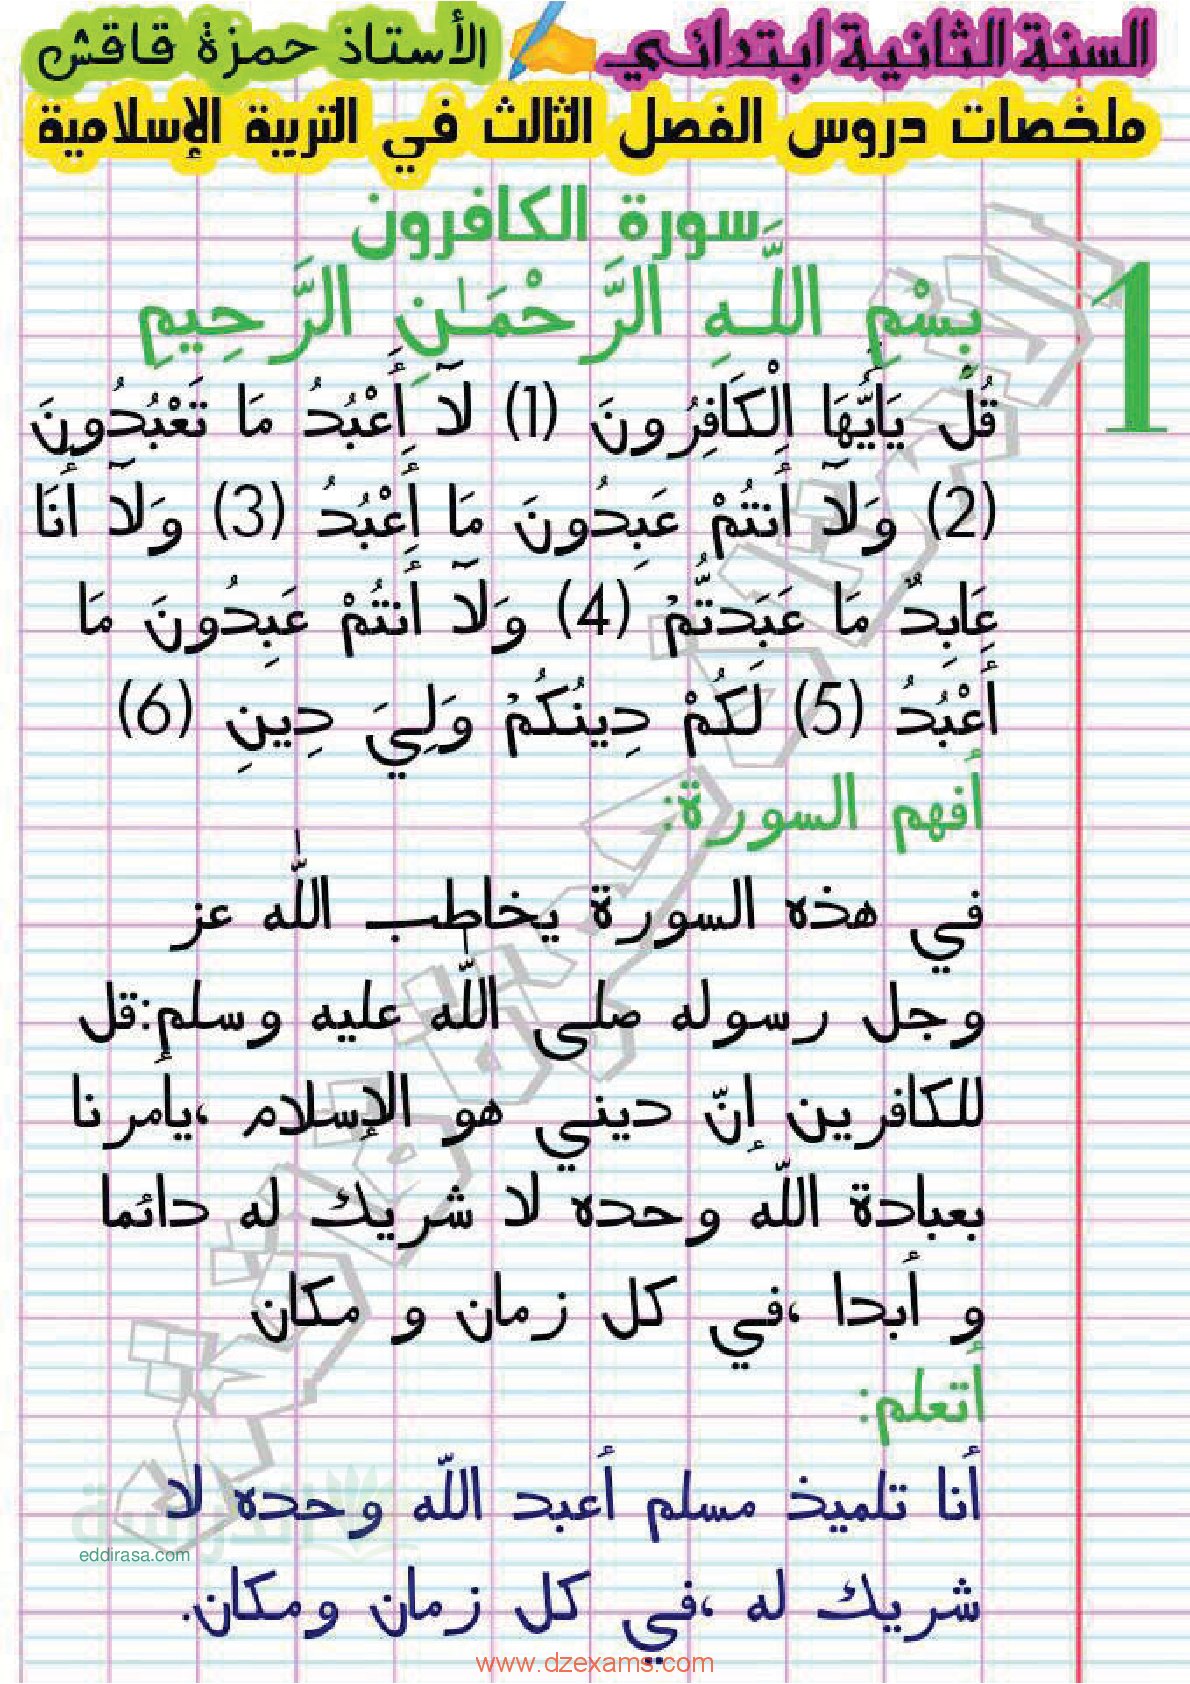 السنة الثانية ابتدائي ✍ الأستاذ حمزة قاقش
ملخصات دروس الفصل الثالث في التربية الإسلامية
1
سورة الكافرون
بِسْمِ اللَّهِ الرَّحْمَٰنِ الرَّحِيمِ
قُلْ يَاأَيُّهَا اَلْكَافِرُونَ (1) لَآ أَعْبُدُ مَا تَعْبُدُونَ
(2) وَلَآ أَنتُمْ عَبِدُونَ مَا أَعْبُدُ (3) وَلَآ أَنَا
عَابِدٌ مَا عَبَدتُّمْ (4) وَلَآ أَنتُمْ عَبِدُونَ مَا
أَعْبُدُ (5) لَكُمْ دِينُكُمْ وَلِيَ دِينِ (6)
أفهم السورة:
في هذه السورة يخاطب اللّٰه عز
وجل رسوله صلى اللّٰه عليه وسلم:قل
للكافرين إنّ ديني هو الإسلام ،يأمرنا
بعبادة اللّه وحده لا شريك له دائما
و أبدا ،في كل زمان و مكان
أتعلم:
أنا تلميذ مسلم أعبد اللّه وحده لا
شريك له ،في كل زمان ومكان.
الدراسة
eddirasa.com
www.dzexams.com